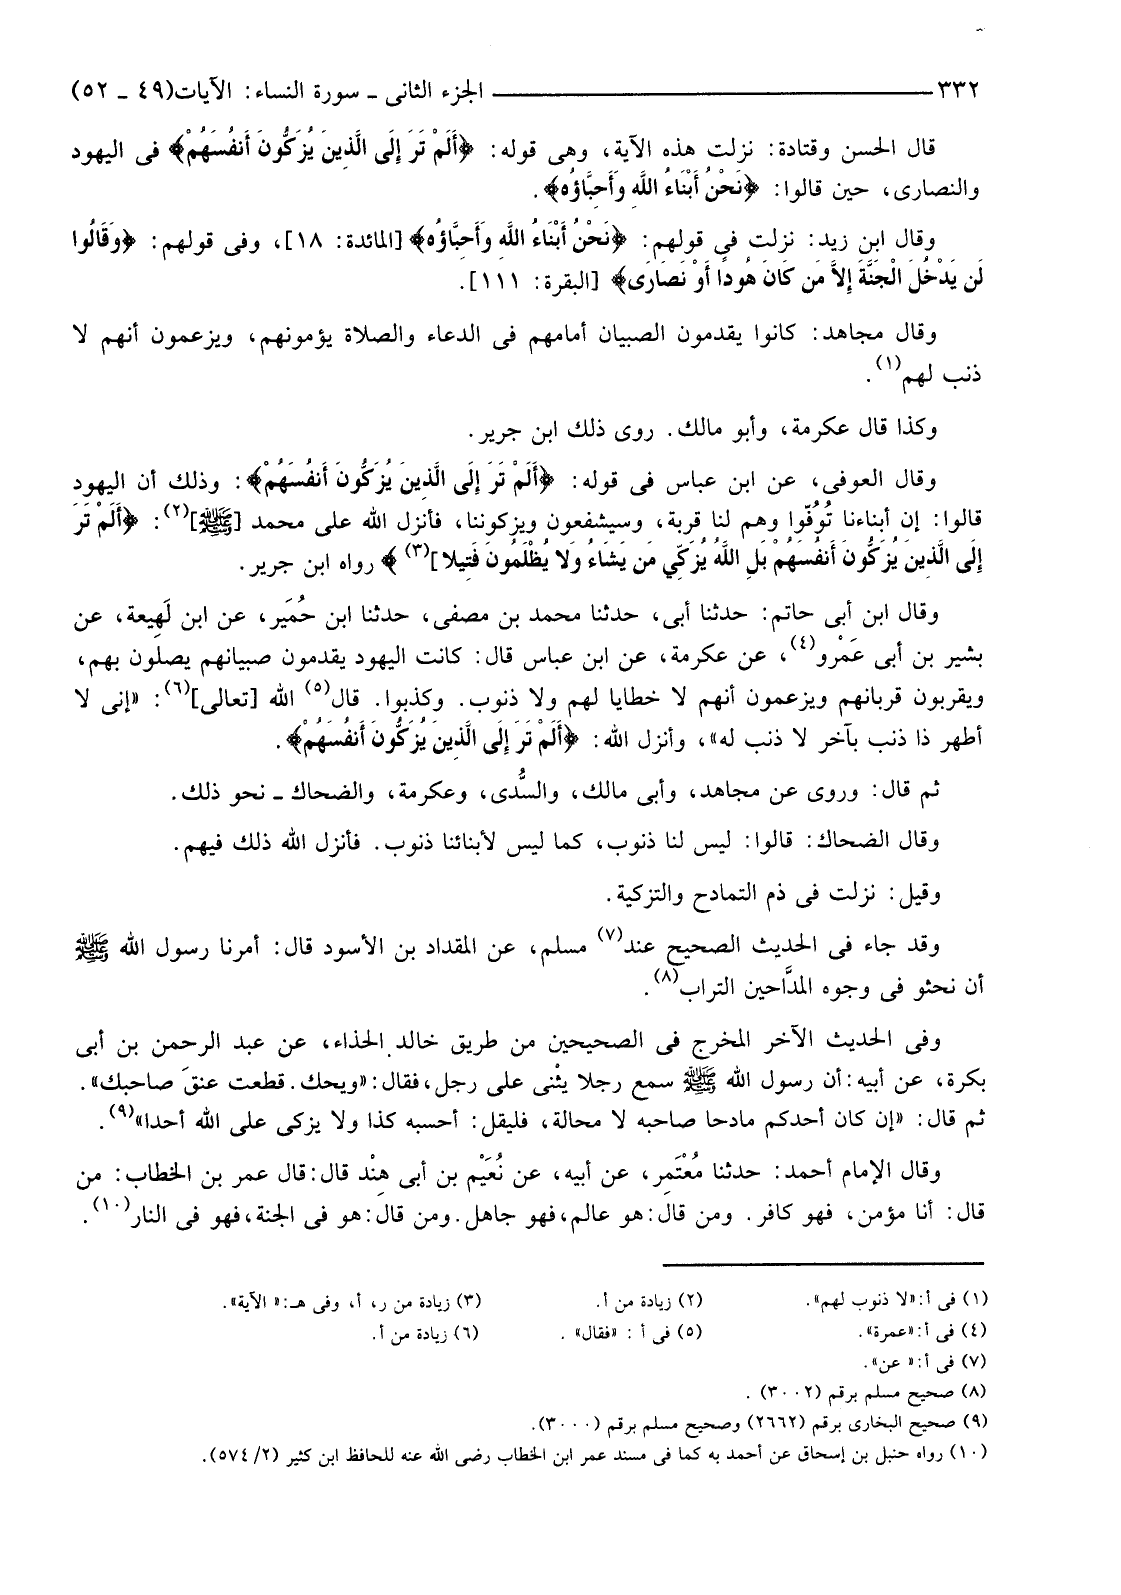 ٣٣٢ ــــــــــــــــ الجزء الثانى ـ سورة النساء: الآيات(٤٩ ـ ٥٢)
قال الحسن وقتادة: نزلت هذه الآية، وهى قوله: ﴿أَلَمْ تَرَ إِلَى الَّذِينَ يُزَكُّونَ أَنفُسَهُمْ﴾ فى اليهود
والنصارى، حين قالوا: ﴿نَحْنُ أَبْنَاءُ اللَّهِ وَأَحِبَّاؤُه﴾.
وقال ابن زيد: نزلت فى قولهم: ﴿نَحْنُ أَبْنَاءُ اللَّهِ وَأَحِبَّاؤُه﴾ [المائدة: ١٨]، وفى قولهم: ﴿وَقَالُوا
لَن يَدْخُلَ الْجَنَّةَ إِلاَّ مَن كَانَ هُودًا أَوْ نَصَارَى﴾ [البقرة: ١١١].
وقال مجاهد: كانوا يقدمون الصبيان أمامهم فى الدعاء والصلاة يؤمونهم، ويزعمون أنهم لا
ذنب لهم(١).
وكذا قال عكرمة، وأبو مالك. روى ذلك ابن جرير.
وقال العوفى، عن ابن عباس فى قوله: ﴿أَلَمْ تَرَ إِلَى الَّذِينَ يُزَكُّونَ أَنفُسَهُمْ﴾: وذلك أن اليهود
قالوا: إن أبناءنا تُوُفّوا وهم لنا قربة، وسيشفعون ويزكوننا، فأنزل الله على محمد [ﷺ](٢): ﴿أَلَمْ تَرَ
إِلَى الَّذِينَ يُزَكُّونَ أَنفُسَهُمْ بَلِ اللَّهُ يُزَكِّي مَن يَشَاءُ وَلا يُظْلَمُونَ فَتِيلا](٣) ﴾ رواه ابن جرير.
وقال ابن أبى حاتم: حدثنا أبى، حدثنا محمد بن مصفى، حدثنا ابن حُمَير، عن ابن لَهِيعة، عن
بشير بن أبى عَمْرو(٤)، عن عكرمة، عن ابن عباس قال: كانت اليهود يقدمون صبيانهم يصلون بهم،
ويقربون قربانهم ويزعمون أنهم لا خطايا لهم ولا ذنوب. وكذبوا. قال(٥) الله [تعالى](٦): «إنى لا
أطهر ذا ذنب بآخر لا ذنب له»، وأنزل الله: ﴿أَلَمْ تَرَ إِلَى الَّذِينَ يُزَكُّونَ أَنفُسَهُمْ﴾.
ثم قال: وروى عن مجاهد، وأبى مالك، والسُّدى، وعكرمة، والضحاك ـ نحو ذلك.
وقال الضحاك: قالوا: ليس لنا ذنوب، كما ليس لأبنائنا ذنوب. فأنزل الله ذلك فيهم.
وقيل: نزلت فى ذم التمادح والتزكية.
وقد جاء فى الحديث الصحيح عند(٧) مسلم، عن المقداد بن الأسود قال: أمرنا رسول الله ﷺ
أن نحثو فى وجوه المدَّاحين التراب(٨).
وفى الحديث الآخر المخرج فى الصحيحين من طريق خالد الحذاء، عن عبد الرحمن بن أبى
بكرة، عن أبيه:أن رسول الله ﷺ سمع رجلا يثْنى على رجل،فقال:«ويحك. قطعت عنقَ صاحبك».
ثم قال: «إن كان أحدكم مادحا صاحبه لا محالة، فليقل: أحسبه كذا ولا يزكى على الله أحدا»(٩).
وقال الإمام أحمد: حدثنا مُعْتَمِر، عن أبيه، عن نُعَيْم بن أبى هِنْد قال:قال عمر بن الخطاب: من
قال: أنا مؤمن، فهو كافر. ومن قال:هو عالم،فهو جاهل.ومن قال:هو فى الجنة،فهو فى النار(١٠).
(١) فى أ:«لا ذنوب لهم». (٢) زيادة من أ. (٣) زيادة من ر، أ، وفى هـ:« الآية».
(٤) فى أ:«عمرة». (٥) فى أ : «فقال» . (٦) زيادة من أ.
(٧) فى أ:« عن».
(٨) صحيح مسلم برقم (٣٠٠٢) .
(٩) صحيح البخارى برقم (٢٦٦٢) وصحيح مسلم برقم (٣٠٠٠).
(١٠) رواه حنبل بن إسحاق عن أحمد به كما فى مسند عمر ابن الخطاب رضى الله عنه للحافظ ابن كثير (٥٧٤/٢).